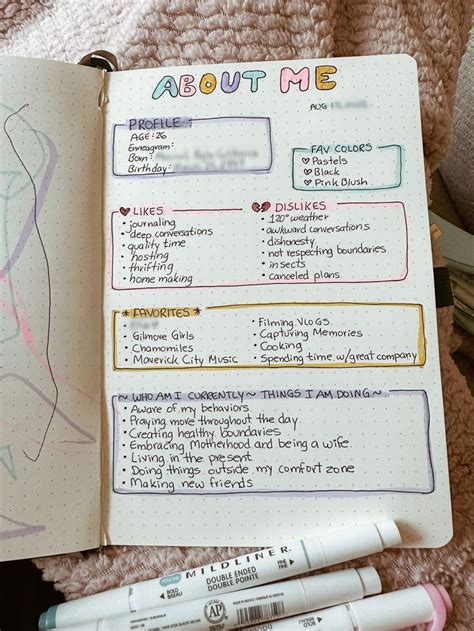 ABOUT ME
AUG
PROFILE
AGE: 26
Enneagram:
Born:
Birthday:
FAV COLORS
Pastels
Black
Pink Blush
LIKES
• journaling
• deep conversations
• quality time
• hosting
• thrifting
• home making
DISLIKES
• 120° weather
• awkward conversations
• dishonesty
• not respecting boundaries
• insects
• canceled plans
*FAVORITES*
• Gilmore Girls
• Chamomiles
• Maverick City Music
• Filming VLOGS
• Capturing Memories
• Cooking
• Spending time w/great company
~ WHO AM I CURRENTLY ~ THINGS I AM DOING ~
• Aware of my behaviors
• Praying more throughout the day
• Creating healthy boundaries
• Embracing Motherhood and being a wife
• Living in the present
• Doing things outside my comfort zone
• Making new friends
MILDLINER
DOUBLE ENDED
DOUBLE POINTE
FINE
BOLD
BISEAU
AP
BOLD
BISEAU